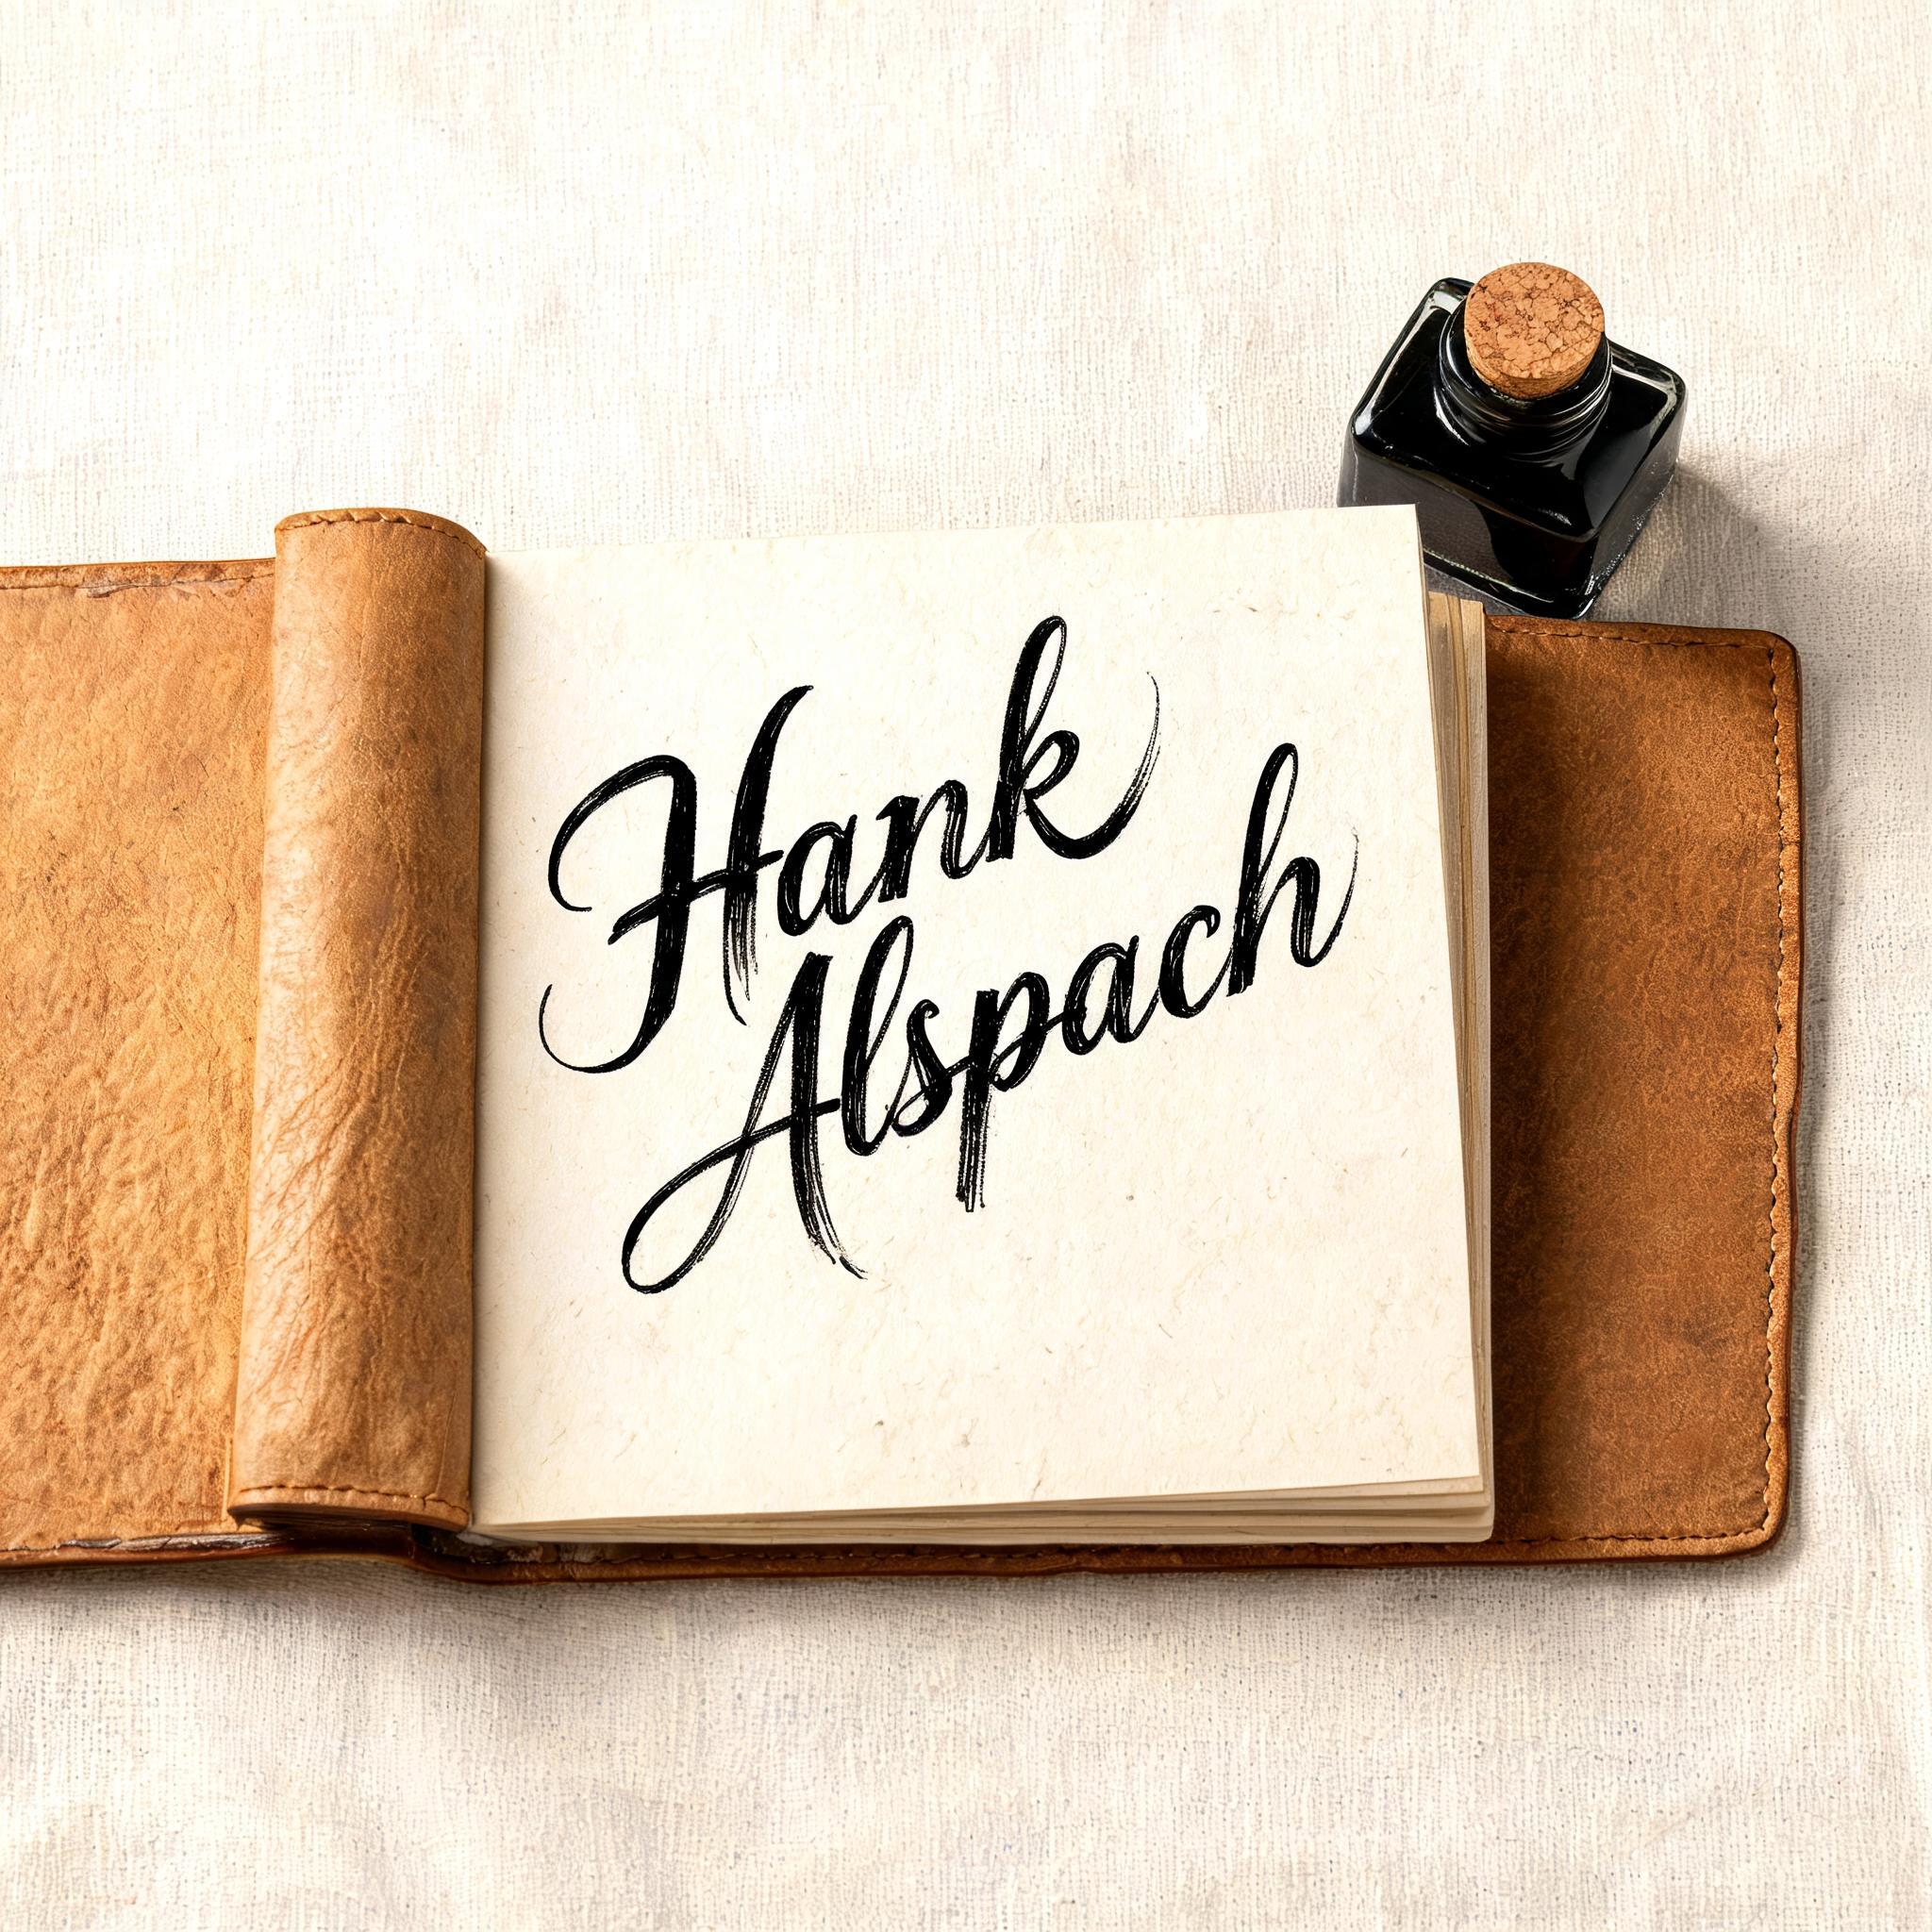 Hank
Alspach